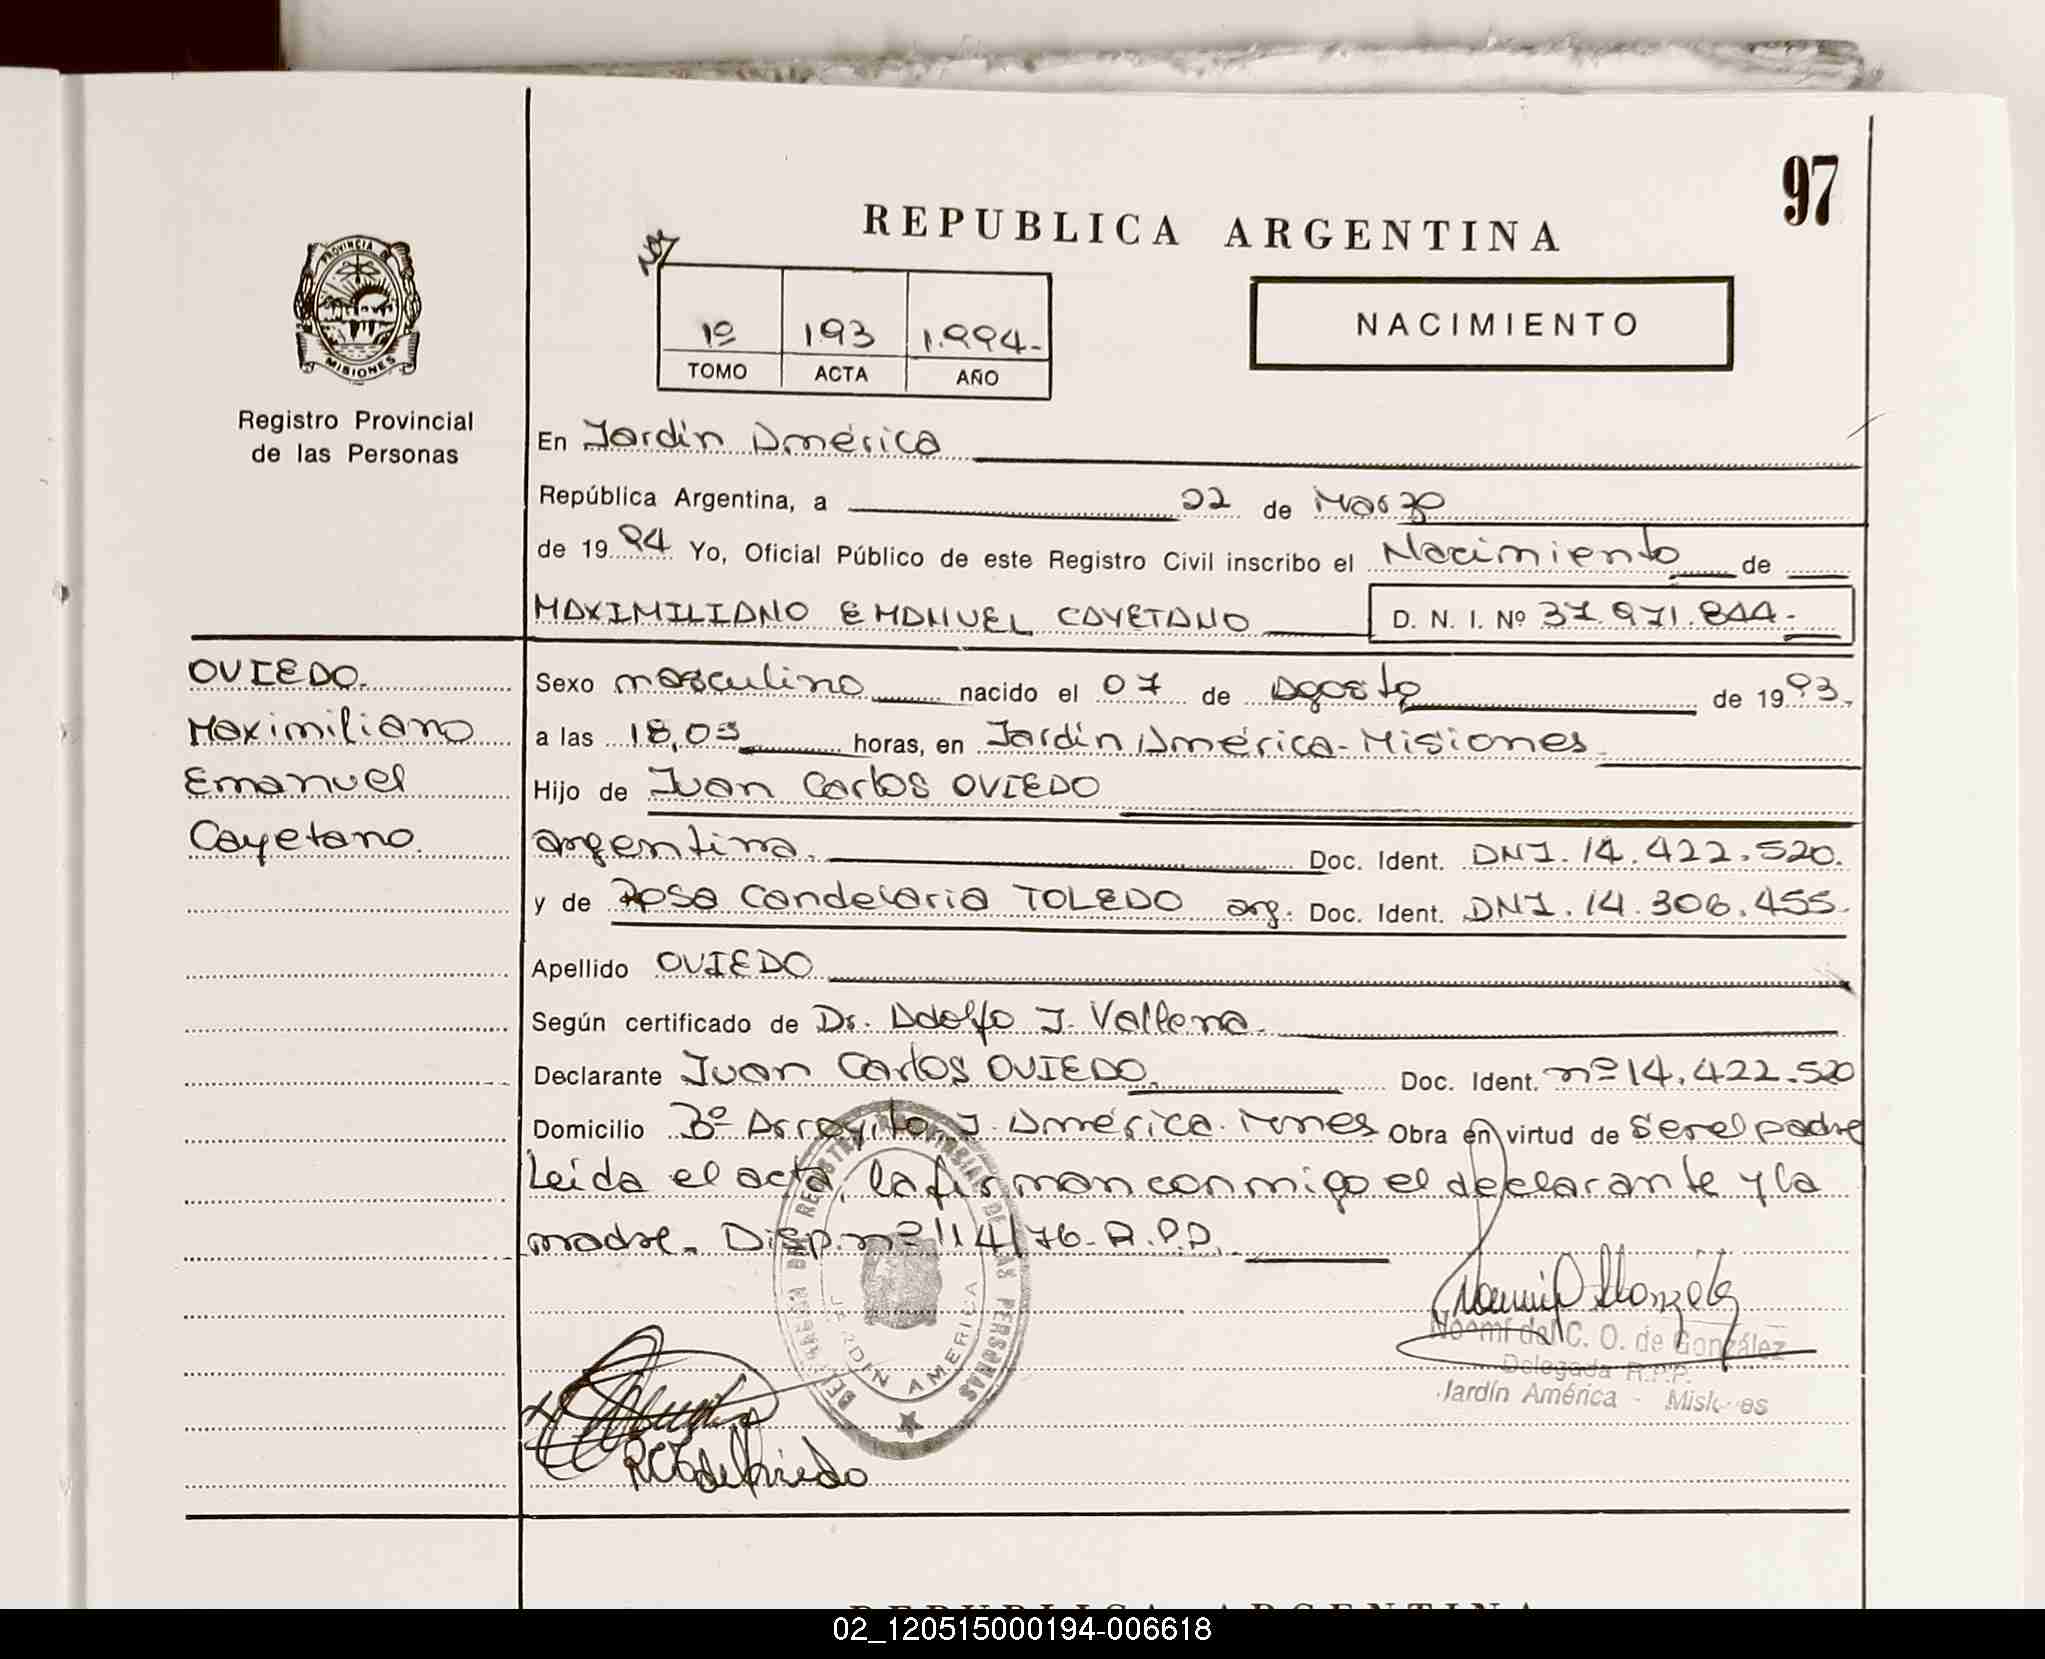 97
REPUBLICA ARGENTINA
PROVINCIA DE
MISIONES
1º 193 1.994-
TOMO ACTA AÑO
NACIMIENTO
Registro Provincial
de las Personas
En Jardín América
República Argentina, a 22 de Marzo
de 1994 Yo, Oficial Público de este Registro Civil inscribo el Nacimiento de
MAXIMILIANO EMANUEL CAYETANO D. N. I. Nº 37.971.844.-
OVIEDO.
Maximiliano
Emanuel
Cayetano.
Sexo masculino nacido el 07 de Agosto de 1993.
a las 18,05 horas, en Jardín América-Misiones
Hijo de Juan Carlos OVIEDO
argentina. Doc. Ident. DNI. 14.422.520.
y de Rosa Candelaria TOLEDO arg. Doc. Ident. DNI. 14.306.455.
Apellido OVIEDO
Según certificado de Dr. Adolfo J.
Declarante Juan Carlos OVIEDO. Doc. Ident. nº 14.422.520
Domicilio Bº Arroyito J. América. Mnes Obra en virtud de ser el padre
Leída el acta, la firman conmigo el declarante y la
madre. Disp. nº 114/76-R.P.P.
JARDIN AMERICA
Noemí del C. O. de González
Delegada R.P.P.
Jardín América - Misiones
RCT de Oviedo
02_120515000194-006618